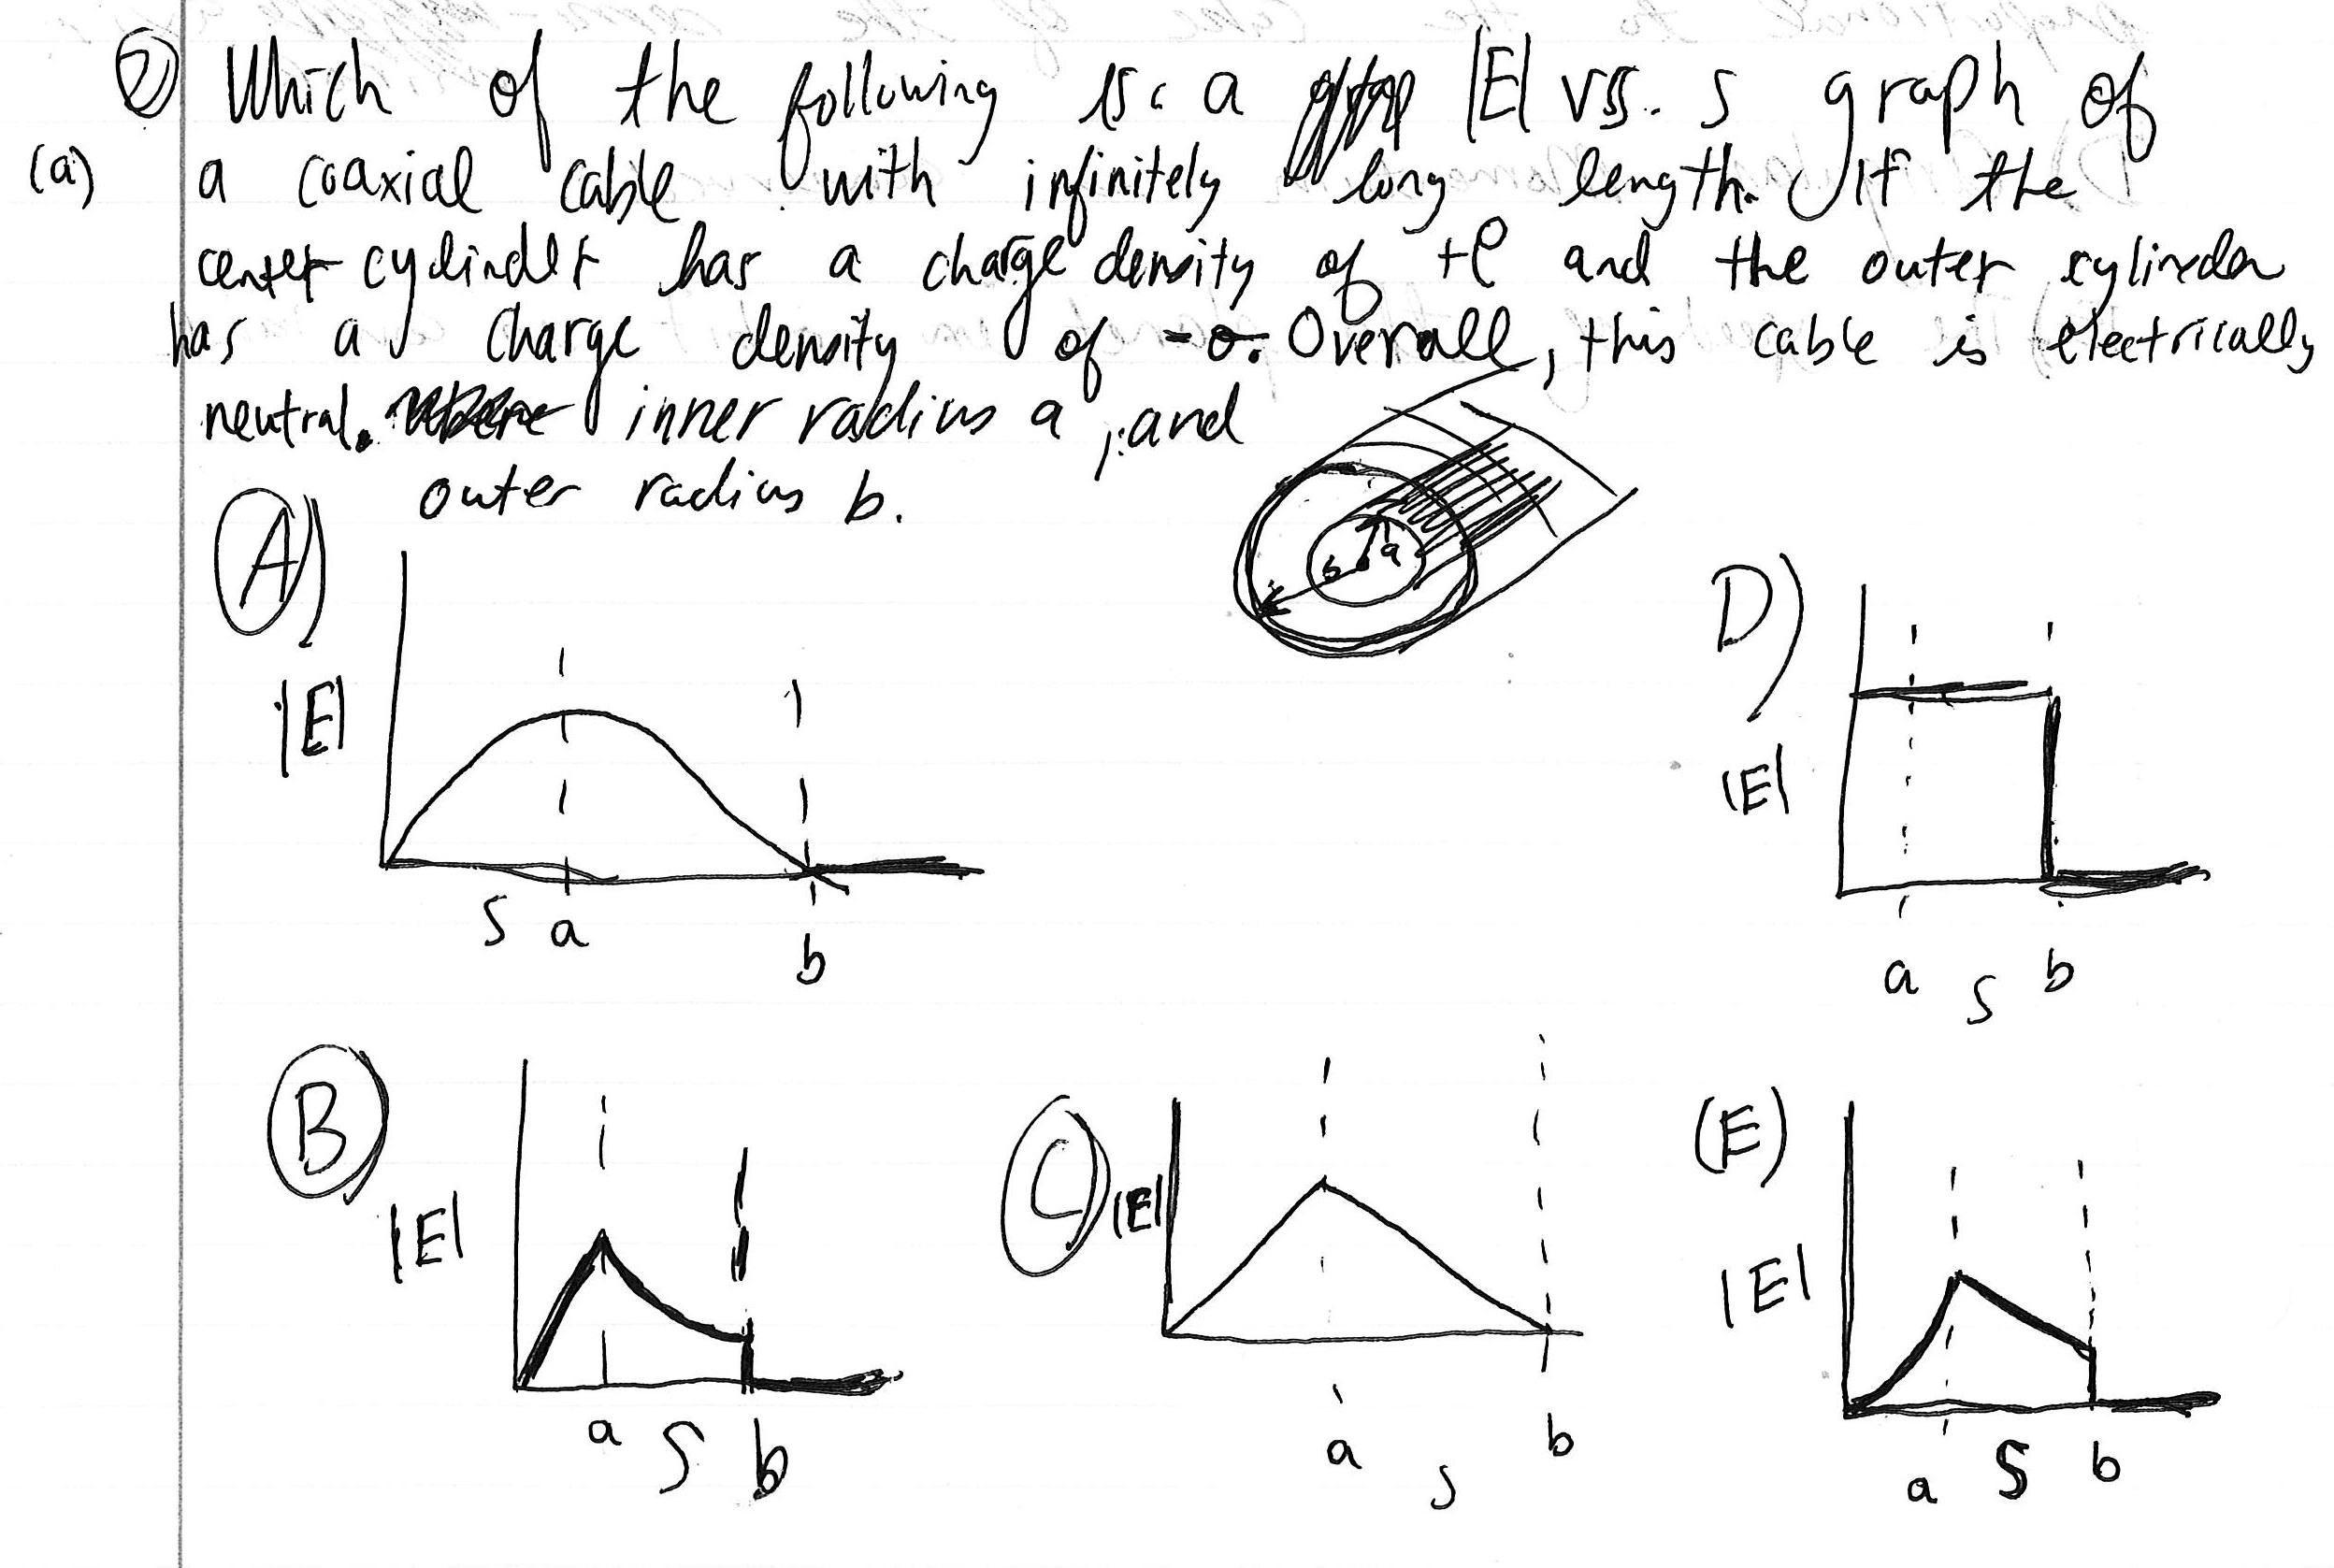 ② Which of the following is a |E| vs. s graph of
(a) a coaxial cable with infinitely long length. If the
center cylinder has a charge density of +ρ and the outer cylinder
has a charge density of -σ. Overall, this cable is electrically
neutral. inner radius a, and
outer radius b.
a
b
A)
|E|
s a
b
D)
|E|
a s b
B
|E|
a s b
C
|E|
a s b
(E)
|E|
a s b